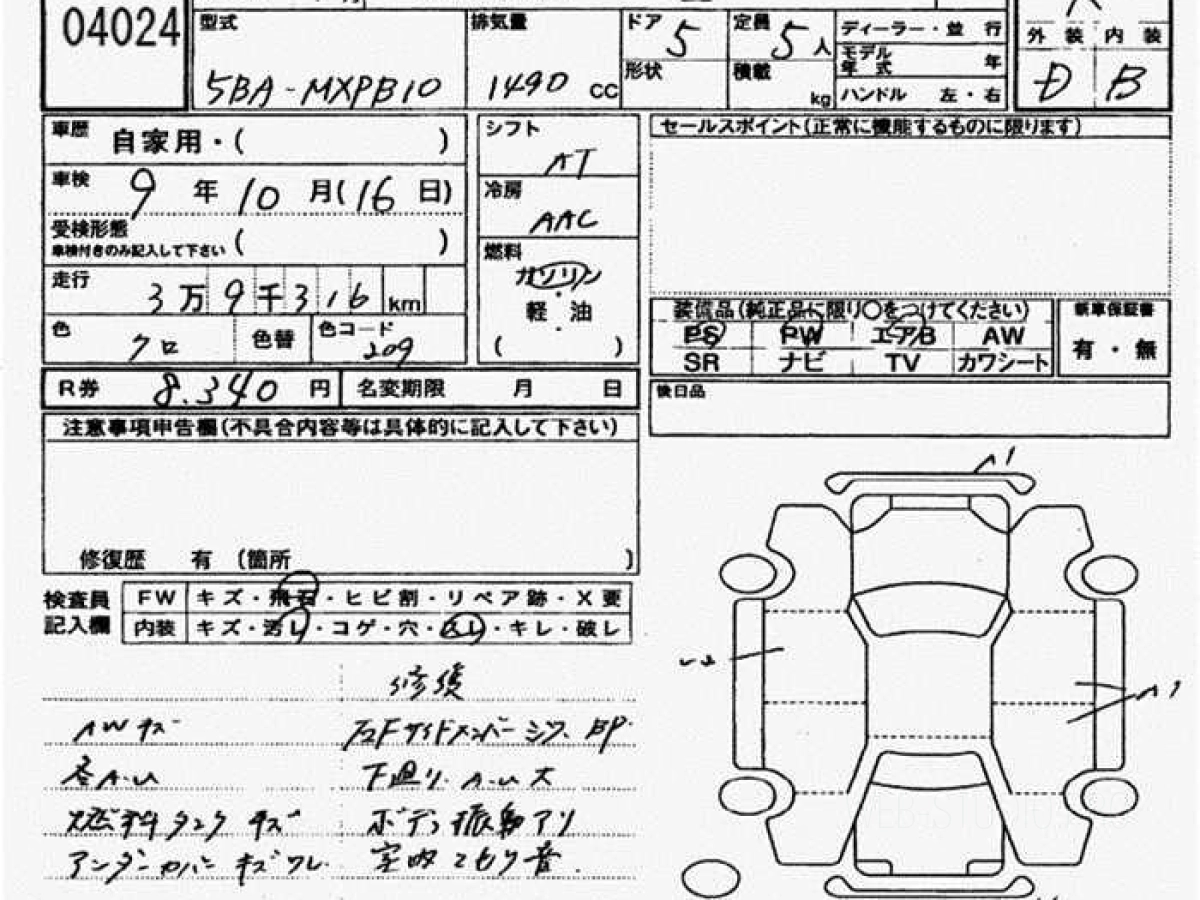 04024
型式
5BA-MXPB10
排気量
1490 cc
ドア
5
形状
定員
5人
積載
kg
ディーラー・並 行
モデル
年 式 年
ハンドル 左・右
外 装 内 装
D B
車歴 自家用・( )
車検 9年10月(16日)
受検形態
車検付きのみ記入して下さい ( )
走行 3万9千316km
色 クロ 色替 色コード 209
シフト
AT
冷房
AAC
燃料
ガソリン
・
軽 油
・
( )
セールスポイント(正常に機能するものに限ります)
装備品(純正品に限り〇をつけてください)
PS PW エアB AW
SR ナビ TV カワシート
新車保証書
有・無
後日品
R券 8.340円 名変期限 月 日
注意事項申告欄(不具合内容等は具体的に記入して下さい)
修復歴 有 (箇所 )
検査員
記入欄
FW キズ・飛石・ヒビ割・リペア跡・X要
内装 キズ・汚し・コゲ・穴・スレ・キレ・破レ
修復
AWキズ
各A-U
燃料タンク キズ
アンダーカバー キズワレ
左Fサイドメンバー シワ. BP.
下廻り.A-U大
ボディ振動アリ
室内こもり音.
A1
A1